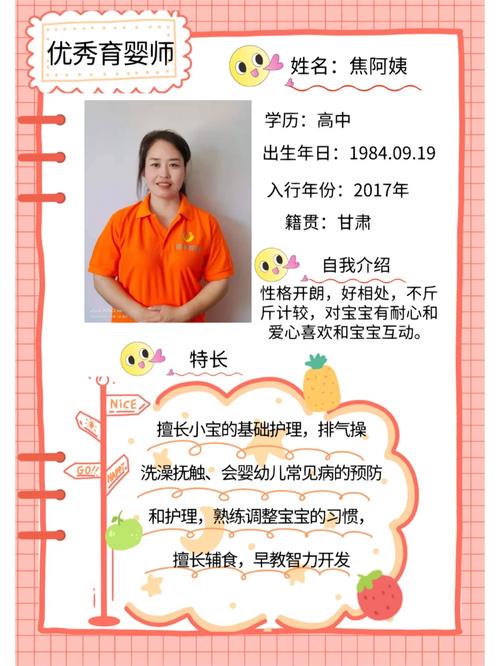 优秀育婴师
姓名：焦阿姨
学历：高中
出生年日：1984.09.19
入行年份：2017年
籍贯：甘肃
自我介绍
性格开朗，好相处，不斤
斤计较，对宝宝有耐心和
爱心喜欢和宝宝互动。
特长
NiCE
擅长小宝的基础护理，排气操
GO!!
HAPPY
洗澡抚触、会婴幼儿常见病的预防
和护理，熟练调整宝宝的习惯，
擅长辅食，早教智力开发